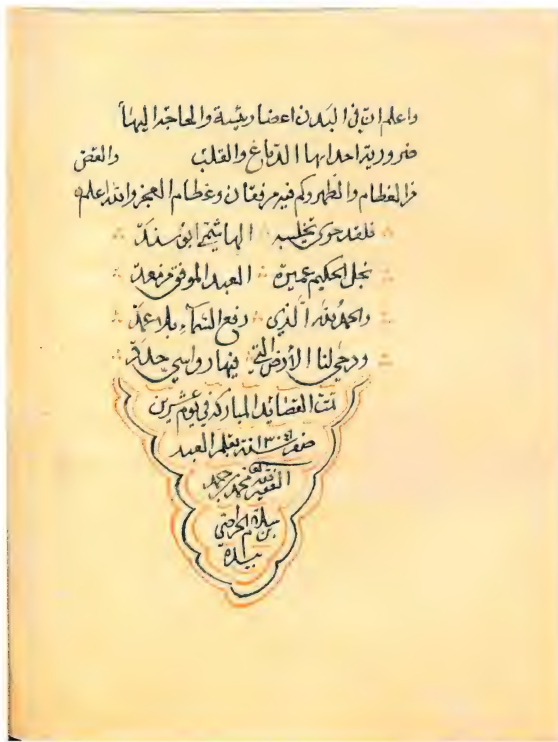 واعلم ان في البدن اعضا رئيسة والحاجة اليها
ضرورية احداها الدماغ والقلب والعض
من العظام والظهر وكم فيه من فقار وعظام العجز والله اعلم
فلقد حوى الهاشمي ابو سند
نجل الحكيم عميرة العبد الموفق من معد
والحمد لله الذي رفع السماء بلا عمد
ودحى لنا الأرض التي فيها رواسي
تمت القصائد المباركة في يوم عشرين
صفر سنة ١٣٠٤ بقلم العبد
الفقير لله محمد بن حمد
بن سلام
بيده